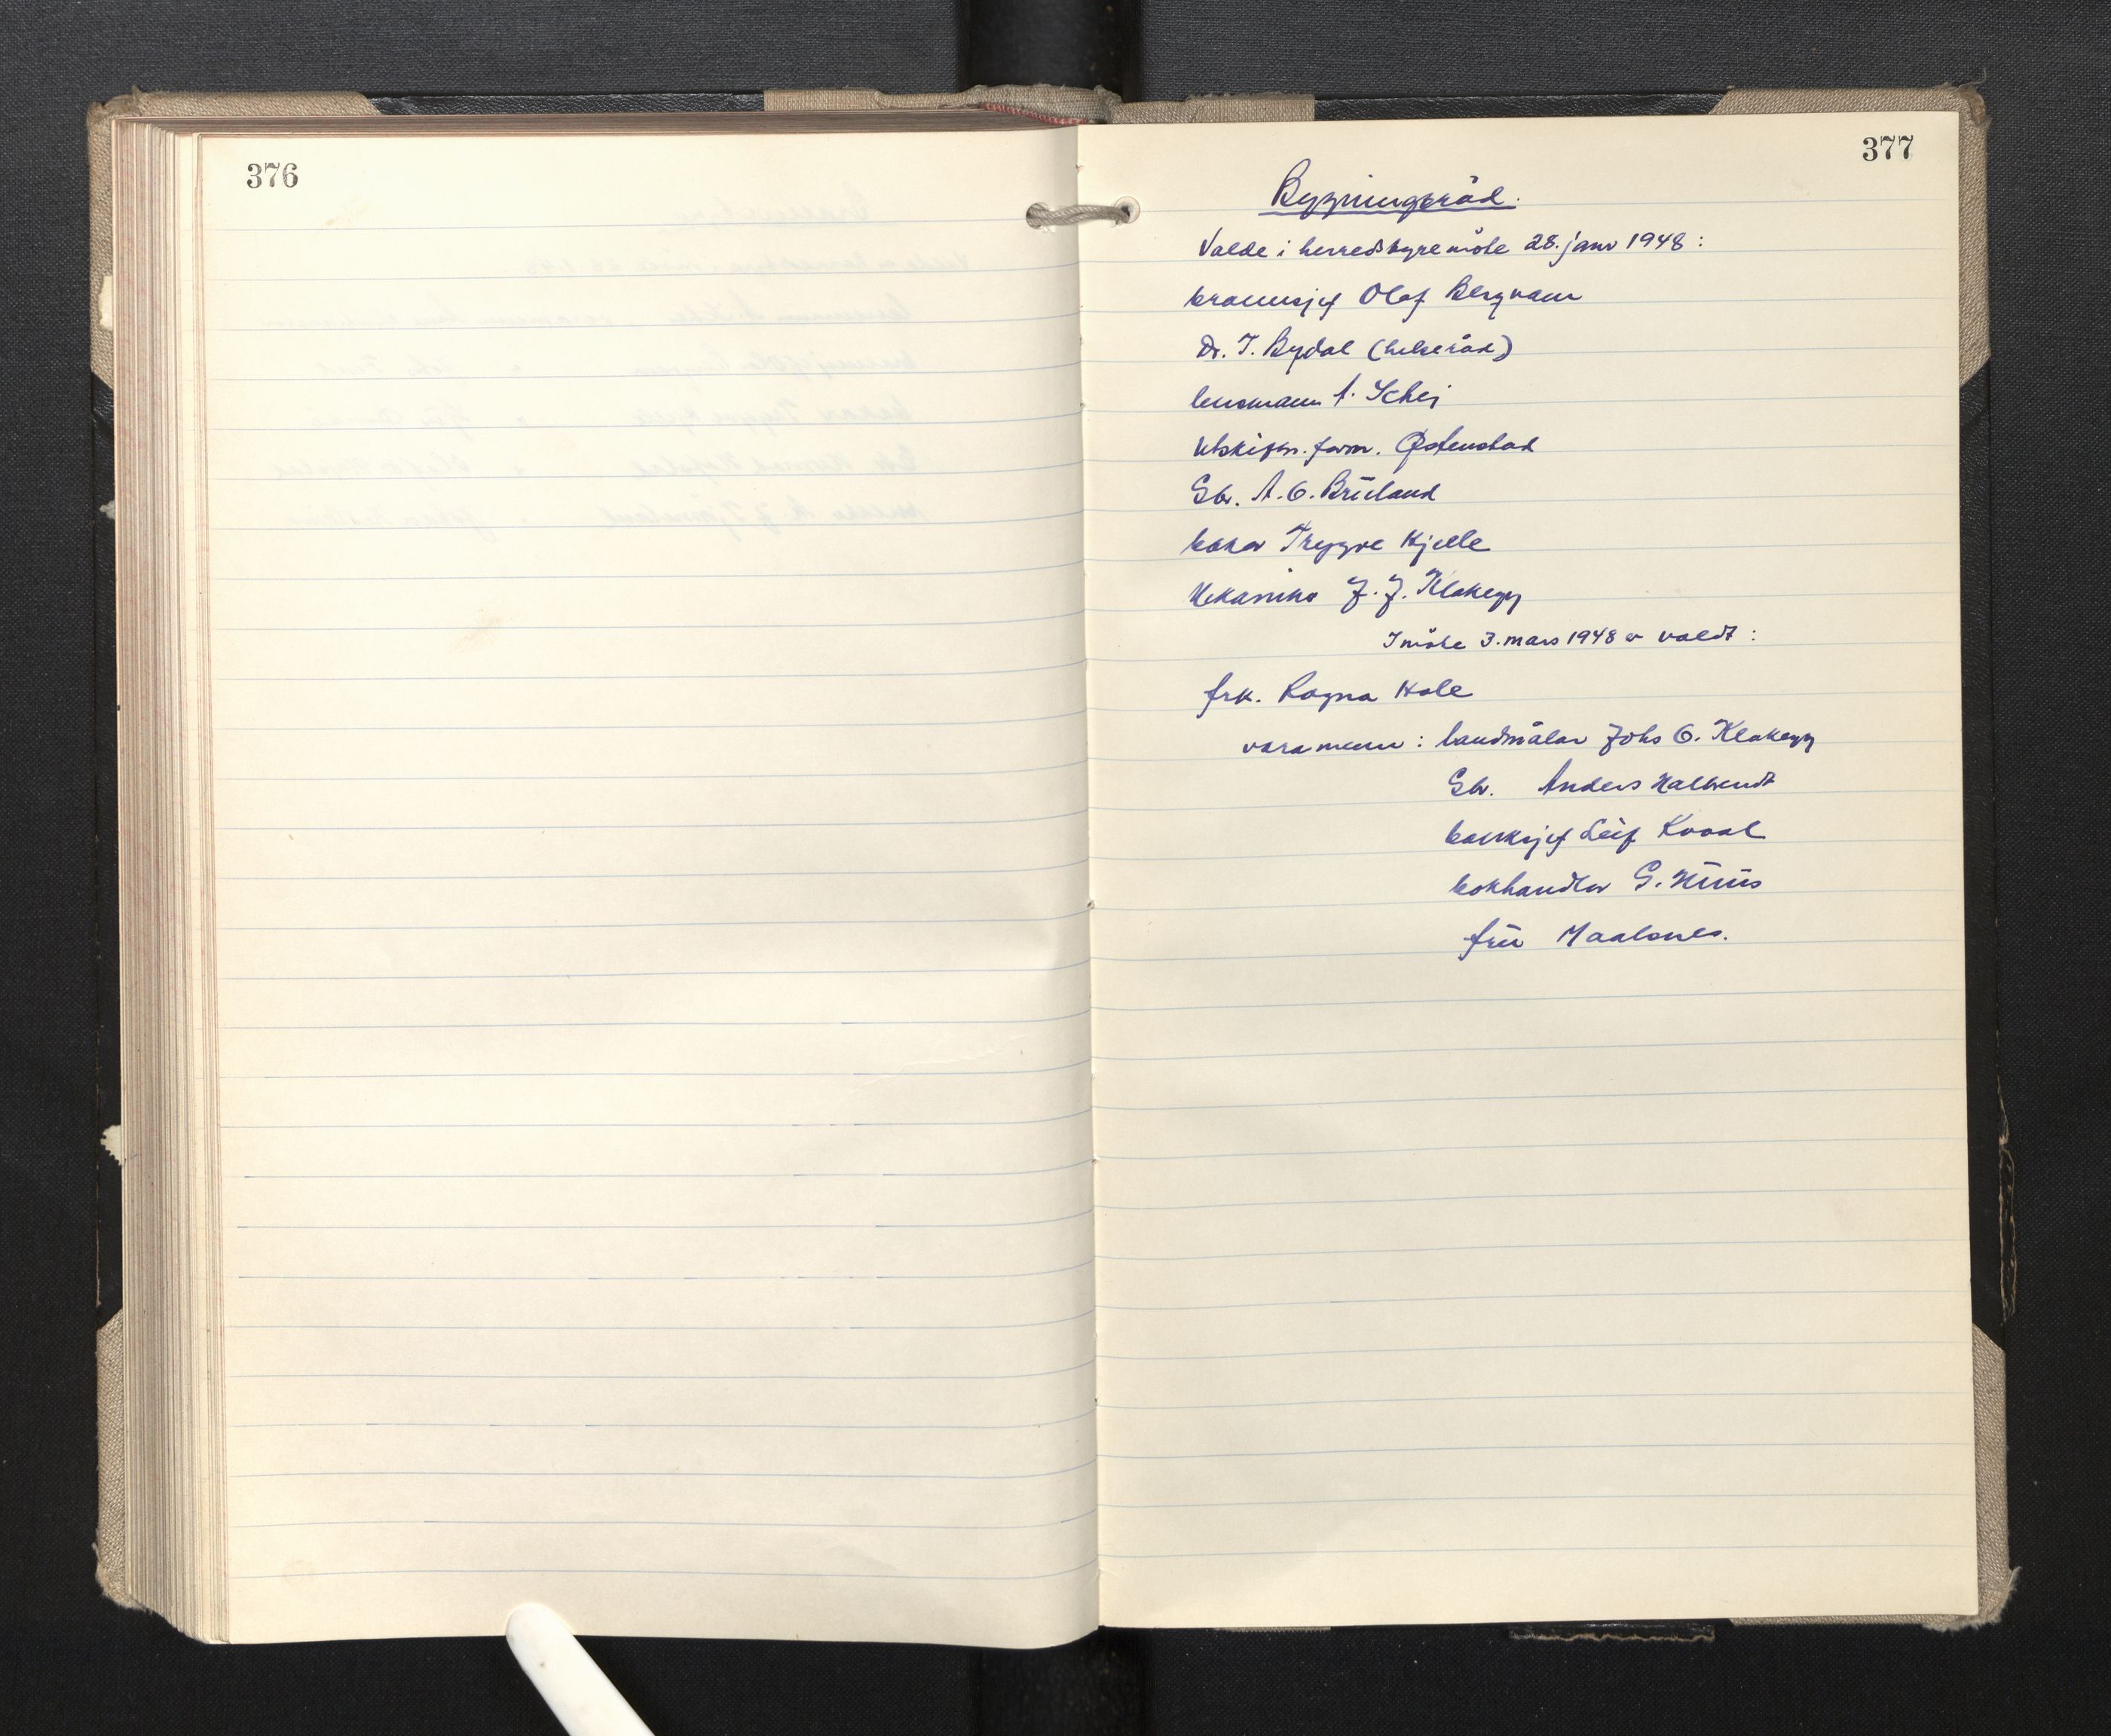 376
377
Bygningsråd.
Valde i herredstyremöte 28. janr 1948:
brannsjef Olaf Bergvam
Dr. T. Bydal (helseråd)
lensmann A. Schei
Utskiftn. form. Østenstad
Gbr. A. O. Brüland
bakar Trygve Hjelle
Mekanikar J. J. Klakegg
I möte 3. mars 1948 er valdt:
frk. Ragna Hole
varamenn: landmålar Johs O. Klakegg
Gbr. Anders Halbrendt
banksjef Leif Kvaal
bokhandlar G. Hüüs
früe Maalsnes.